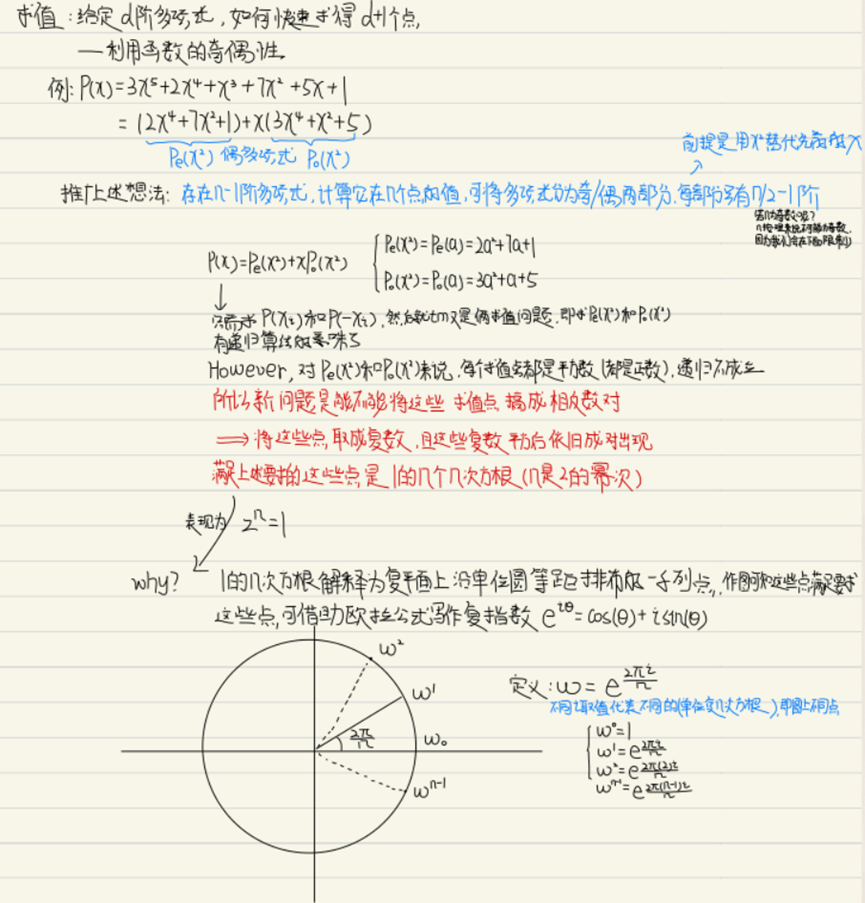 求值:给定d阶多项式,如何快速求得d+1个点,
—利用函数的奇偶性.
例:P(x)=3x⁵+2x⁴+x³+7x²+5x+1
=(2x⁴+7x²+1)+x(3x⁴+x²+5)
Pe(x²) 偶多项式 Po(x²)
前提是用x²替代先前的x
推广上述想法:存在n-1阶多项式,计算它在n个点的值,可将多项式分为奇/偶两部分,每部分有n/2-1阶
P(x)=Pe(x²)+xPo(x²)
Pe(x²)=Pe(a)=2a²+7a+1
Po(x²)=Po(a)=3a²+a+5
只需求P(xᵢ)和P(-xᵢ),然后又是俩求值问题,即求Pe(x²)和Po(x²)
有递归算法的意味了
However,对Pe(x²)和Po(x²)来说,每个求值点都是平方数(都是正数),递归不成立
所以新问题是能不能将这些 求值点 搞成相反数对
⟹将这些点取成复数,且这些复数平方后依旧成对出现
满足上述要求的这些点是1的n个n次方根(n是2的幂次)
表现为 zⁿ=1
why? 1的n次方根解释为复平面上沿单位圆等距排布的一系列点,作图可知这些点满足要求
这些点,可借助欧拉公式写作复指数 e^{iθ}=cos(θ)+isin(θ)
ω²
ω¹
2π/n
ω₀
ωⁿ⁻¹
定义:ω=e^{2πi/n}
不同取值代表不同的(单位变n次方根),即图上不同点
ω⁰=1
ω¹=e^{2πi/n}
ω²=e^{2π(2)i/n}
ωⁿ⁻¹=e^{2π(n-1)i/n}